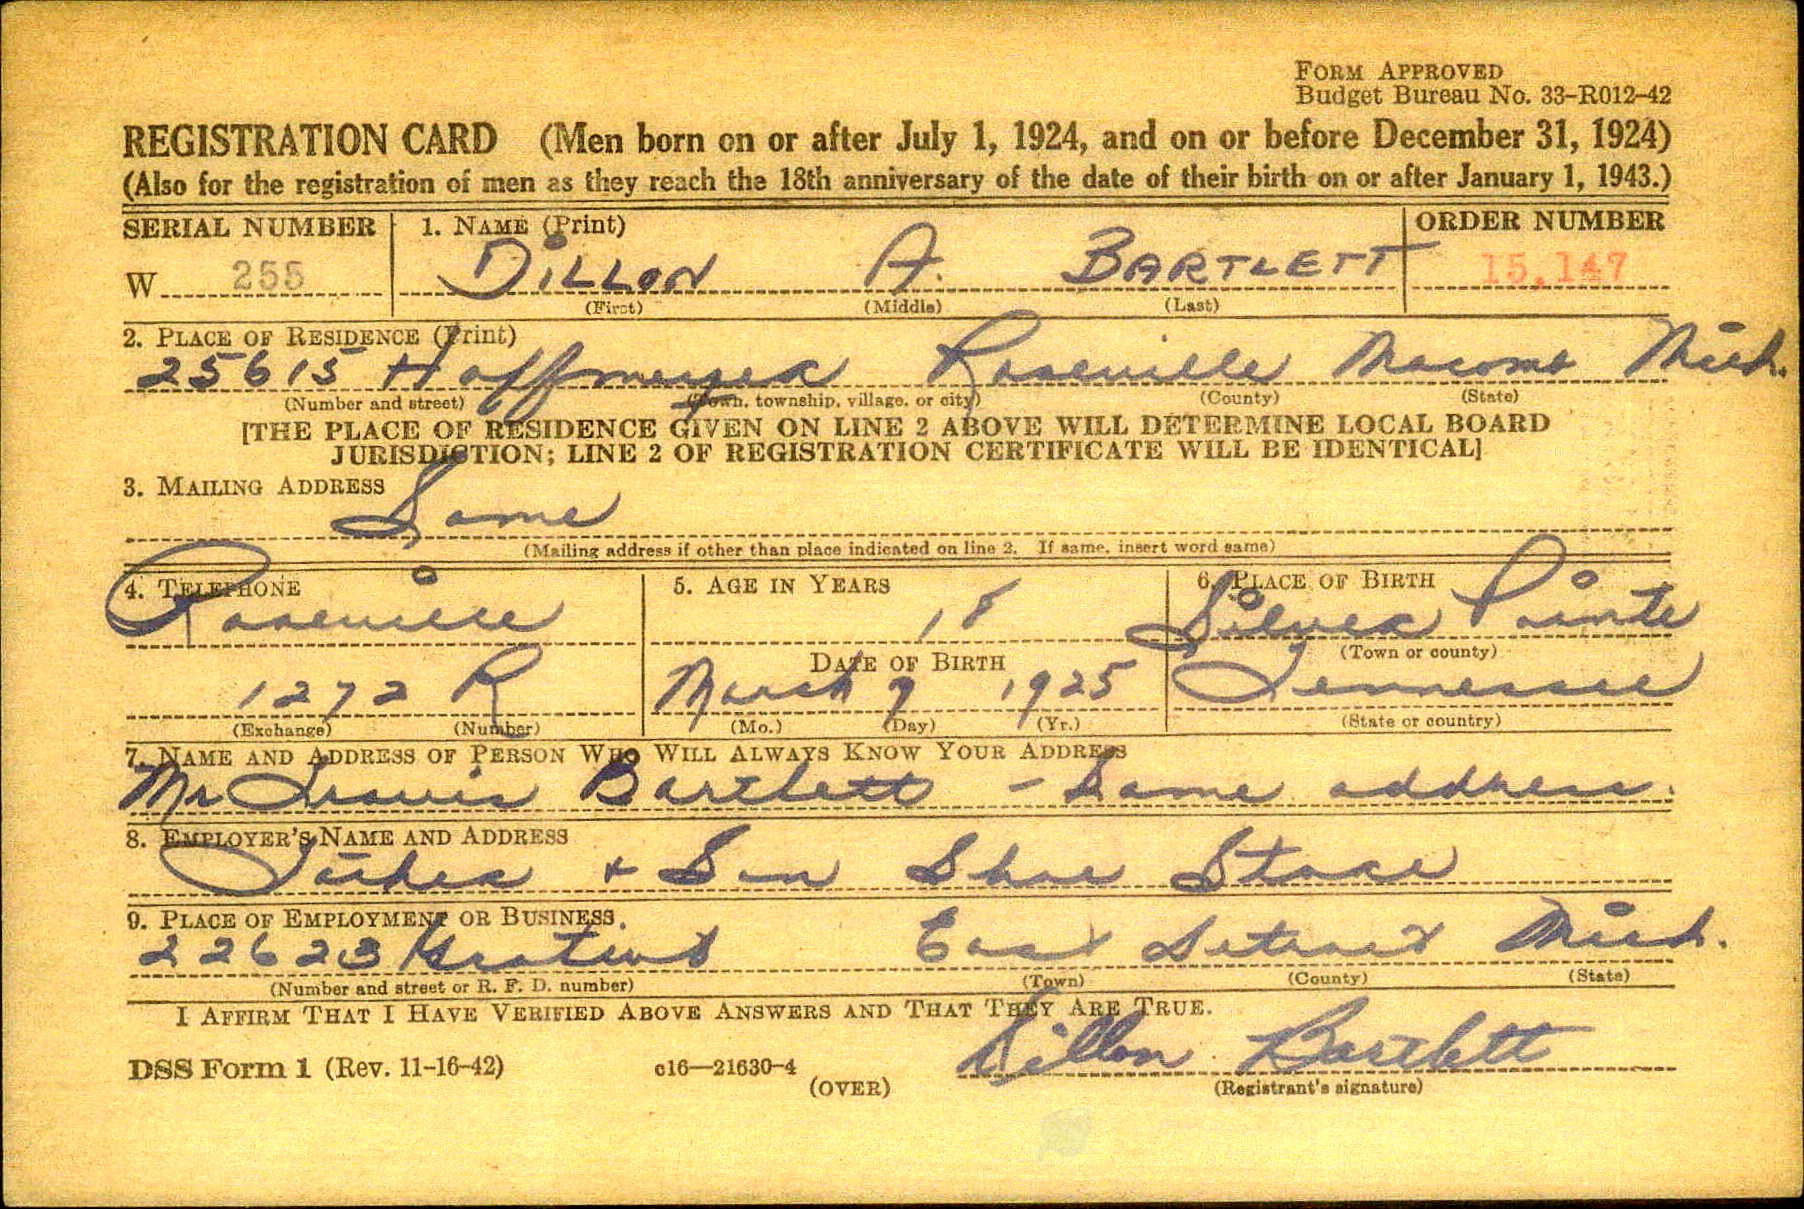 FORM APPROVED
Budget Bureau No. 33-R012-42
REGISTRATION CARD (Men born on or after July 1, 1924, and on or before December 31, 1924)
(Also for the registration of men as they reach the 18th anniversary of the date of their birth on or after January 1, 1943.)
SERIAL NUMBER 1. NAME (Print) ORDER NUMBER
W 255 DILLON A. BARTLETT 15,147
(First) (Middle) (Last)
2. PLACE OF RESIDENCE (Print)
25615 Hoffmeyer Roseville Macomb Mich.
(Number and street) (Town, township, village, or city) (County) (State)
[THE PLACE OF RESIDENCE GIVEN ON LINE 2 ABOVE WILL DETERMINE LOCAL BOARD
JURISDICTION; LINE 2 OF REGISTRATION CERTIFICATE WILL BE IDENTICAL]
3. MAILING ADDRESS
Same
(Mailing address if other than place indicated on line 2. If same, insert word same)
4. TELEPHONE 5. AGE IN YEARS 6. PLACE OF BIRTH
Roseville 18 Silver Pointe
DATE OF BIRTH (Town or county)
1272 R March 9 1925 Tennessee
(Exchange) (Number) (Mo.) (Day) (Yr.) (State or country)
7. NAME AND ADDRESS OF PERSON WHO WILL ALWAYS KNOW YOUR ADDRESS
Mr Travis Bartlett - Same address.
8. EMPLOYER'S NAME AND ADDRESS
& Son Shoe Store
9. PLACE OF EMPLOYMENT OR BUSINESS.
22623 Gratiot East Detroit Mich.
(Number and street or R. F. D. number) (Town) (County) (State)
I AFFIRM THAT I HAVE VERIFIED ABOVE ANSWERS AND THAT THEY ARE TRUE.
DSS Form 1 (Rev. 11-16-42) c16—21630-4 Dillon Bartlett
(OVER) (Registrant's signature)